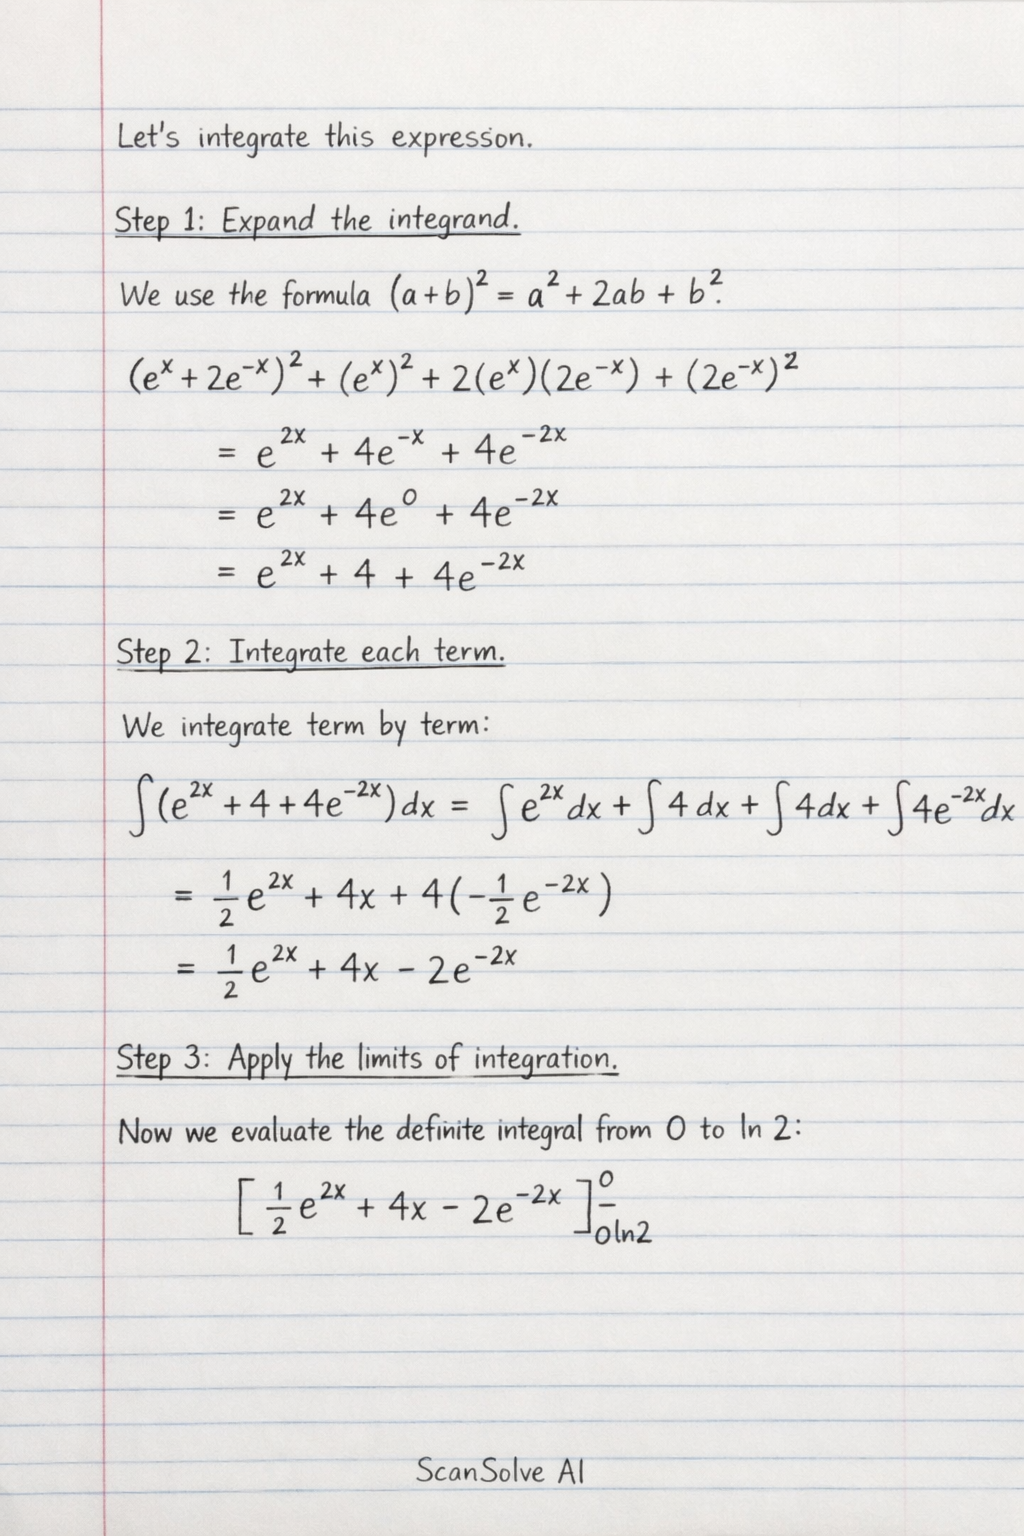 Let's integrate this expresson.
Step 1: Expand the integrand.
We use the formula (a+b)² = a² + 2ab + b².
(eˣ + 2e⁻ˣ)² + (eˣ)² + 2(eˣ)(2e⁻ˣ) + (2e⁻ˣ)²
= e²ˣ + 4e⁻ˣ + 4e⁻²ˣ
= e²ˣ + 4e⁰ + 4e⁻²ˣ
= e²ˣ + 4 + 4e⁻²ˣ
Step 2: Integrate each term.
We integrate term by term:
∫(e²ˣ + 4 + 4e⁻²ˣ)dx = ∫e²ˣdx + ∫4dx + ∫4dx + ∫4e⁻²ˣdx
= 1/2 e²ˣ + 4x + 4(-1/2 e⁻²ˣ)
= 1/2 e²ˣ + 4x - 2e⁻²ˣ
Step 3: Apply the limits of integration.
Now we evaluate the definite integral from 0 to ln 2:
[1/2 e²ˣ + 4x - 2e⁻²ˣ] 0/0ln2
ScanSolve AI